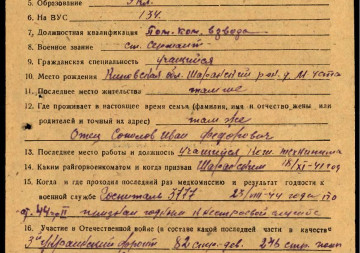 5. Образование 7 кл.
6. На ВУС 134.
7. Должностная квалификация Пом. ком. взвода
8. Военное звание ст. сержант
9. Гражданская специальность учащийся
10. Место рождения Кировская обл. Шарангский рай. д.
11. Последнее место жительства там же
12. Где проживает в настоящее время семья (фамилия, имя и отчество жены или
родителей и точный их адрес) там же
Отец Соколов Иван Федорович
13. Последнее место работы и должность учащийся техникума
14. Каким райгорвоенкоматом и когда призван Шарангским 18/XI-41 год
15. Когда и где проходил последний раз медкомиссию и результат годности к
военной службе Госпиталь 3777 44 года по
44 г. признан годным к строевой службе
16. Участие в Отечественной войне (в составе какой последней части в качестве
3й Украинский фронт 82 стр. див. 246 стр. полк